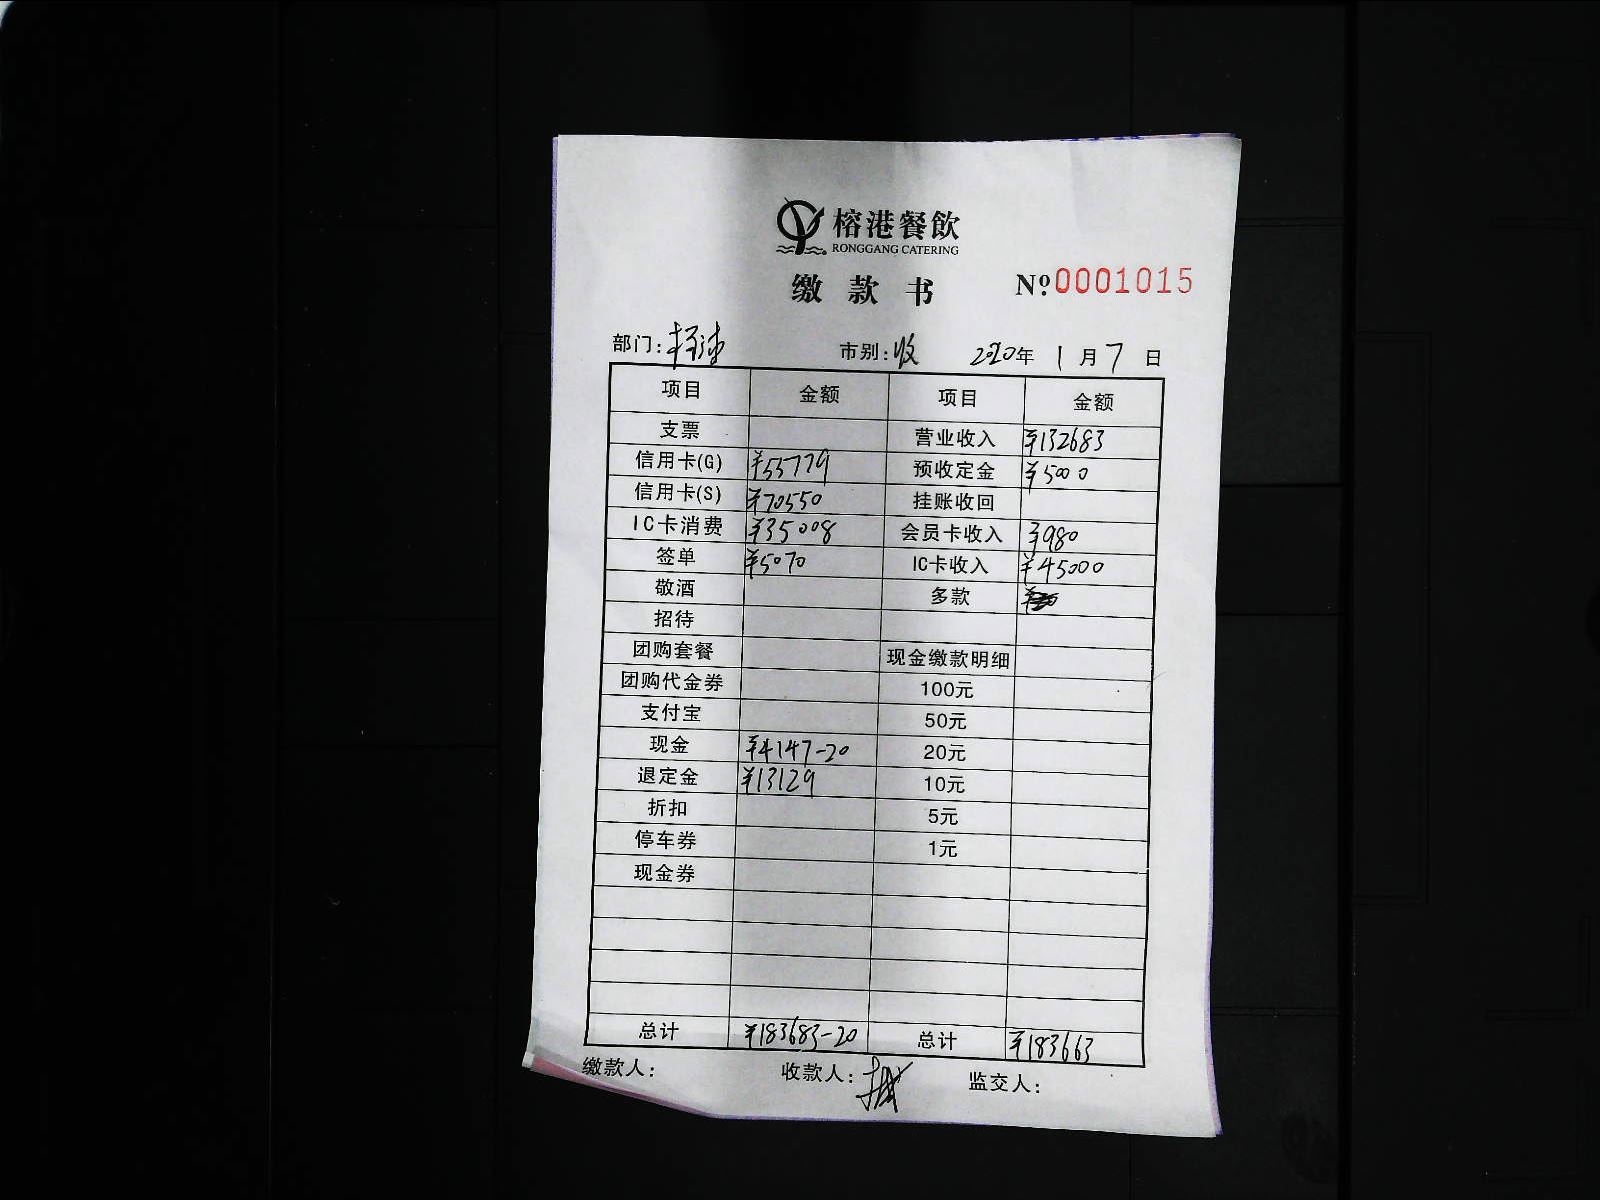 榕港餐飲
RONGGANG CATERING
缴款书 Nº 0001015
部门: 市别:收 2020年1月7日
项目 金额 项目 金额
支票 营业收入 ¥132683
信用卡(G) ¥55779 预收定金 ¥5000
信用卡(S) ¥70550 挂账收回
IC卡消费 ¥35008 会员卡收入 ¥980
签单 ¥5070 IC卡收入 ¥45000
敬酒 多款
招待
团购套餐 现金缴款明细
团购代金券 100元
支付宝 50元
现金 ¥4147-20 20元
退定金 ¥13129 10元
折扣 5元
停车券 1元
现金券
总计 ¥183683-20 总计 ¥183663
缴款人: 收款人: 监交人: